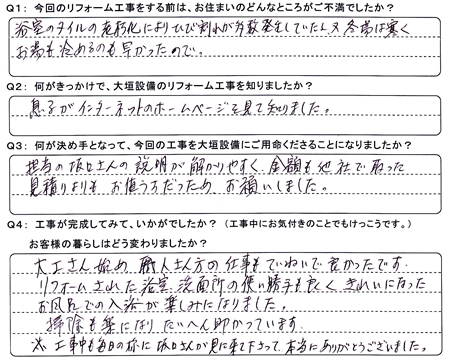 Q1: 今回のリフォーム工事をする前は、お住まいのどんなところがご不満でしたか?
浴室のタイルの老朽化によりひび割れが多数発生していた又冬場は寒く
お湯も冷めるのも早かったので。
Q2: 何がきっかけで、大垣設備のリフォーム工事を知りましたか?
息子がインターネットのホームページを見て知りました。
Q3: 何が決め手となって、今回の工事を大垣設備にご用命くださることになりましたか?
担当の坂口さんの説明が解かりやすく、金額も他社で取った
見積りよりも、お値うちだったため、お願いしました。
Q4: 工事が完成してみて、いかがでしたか? (工事中にお気付きのことでもけっこうです。)
お客様の暮らしはどう変わりましたか?
大工さん始め、職人さん方の仕事もていねいで良かったです。
リフォームされた浴室、洗面所の使い勝手も良く、きれいになった
お風呂での入浴が楽しみになりました。
掃除も楽になり、たいへん助かっています。
※ 工事中も毎日の様に坂口さんが見に来て下さって、本当にありがとうございました。